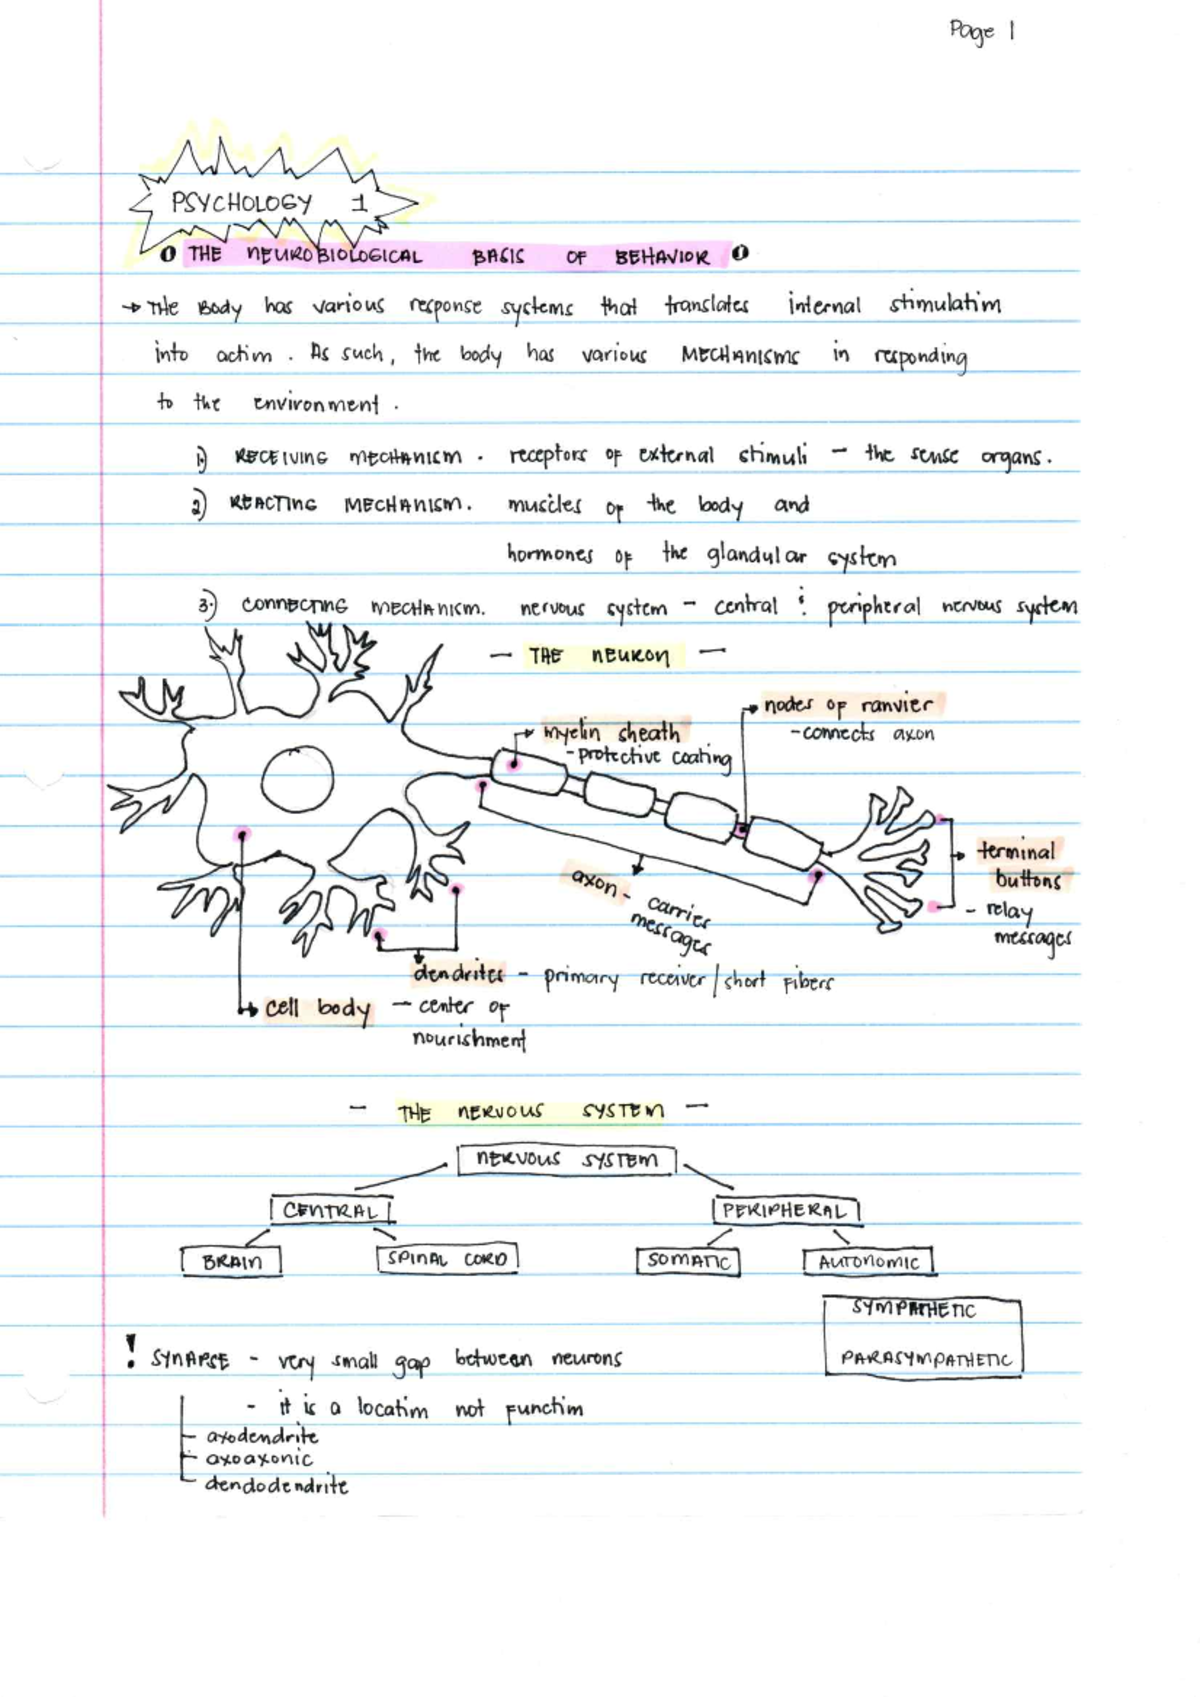 Page 1
PSYCHOLOGY 1
THE NEUROBIOLOGICAL BASIS OF BEHAVIOR
→ The Body has various response systems that translates internal stimulation
into action. As such, the body has various MECHANISMS in responding
to the environment.
1) RECEIVING MECHANISM. receptors of external stimuli - the sense organs.
2) REACTING MECHANISM. muscles of the body and
hormones of the glandular system
3.) CONNECTING MECHANISM. nervous system - central & peripheral nervous system
- THE NEURON -
nodes of ranvier
- connects axon
myelin sheath
- protective coating
terminal
buttons
- relay
messages
axon - carries
messages
dendrites - primary receiver/short fibers
cell body - center of
nourishment
- THE NERVOUS SYSTEM -
NERVOUS SYSTEM
CENTRAL PERIPHERAL
BRAIN SPINAL CORD SOMATIC AUTONOMIC
SYMPATHETIC
PARASYMPATHETIC
! SYNAPSE - very small gap between neurons
- it is a location not function
axodendrite
axoaxonic
dendodendrite